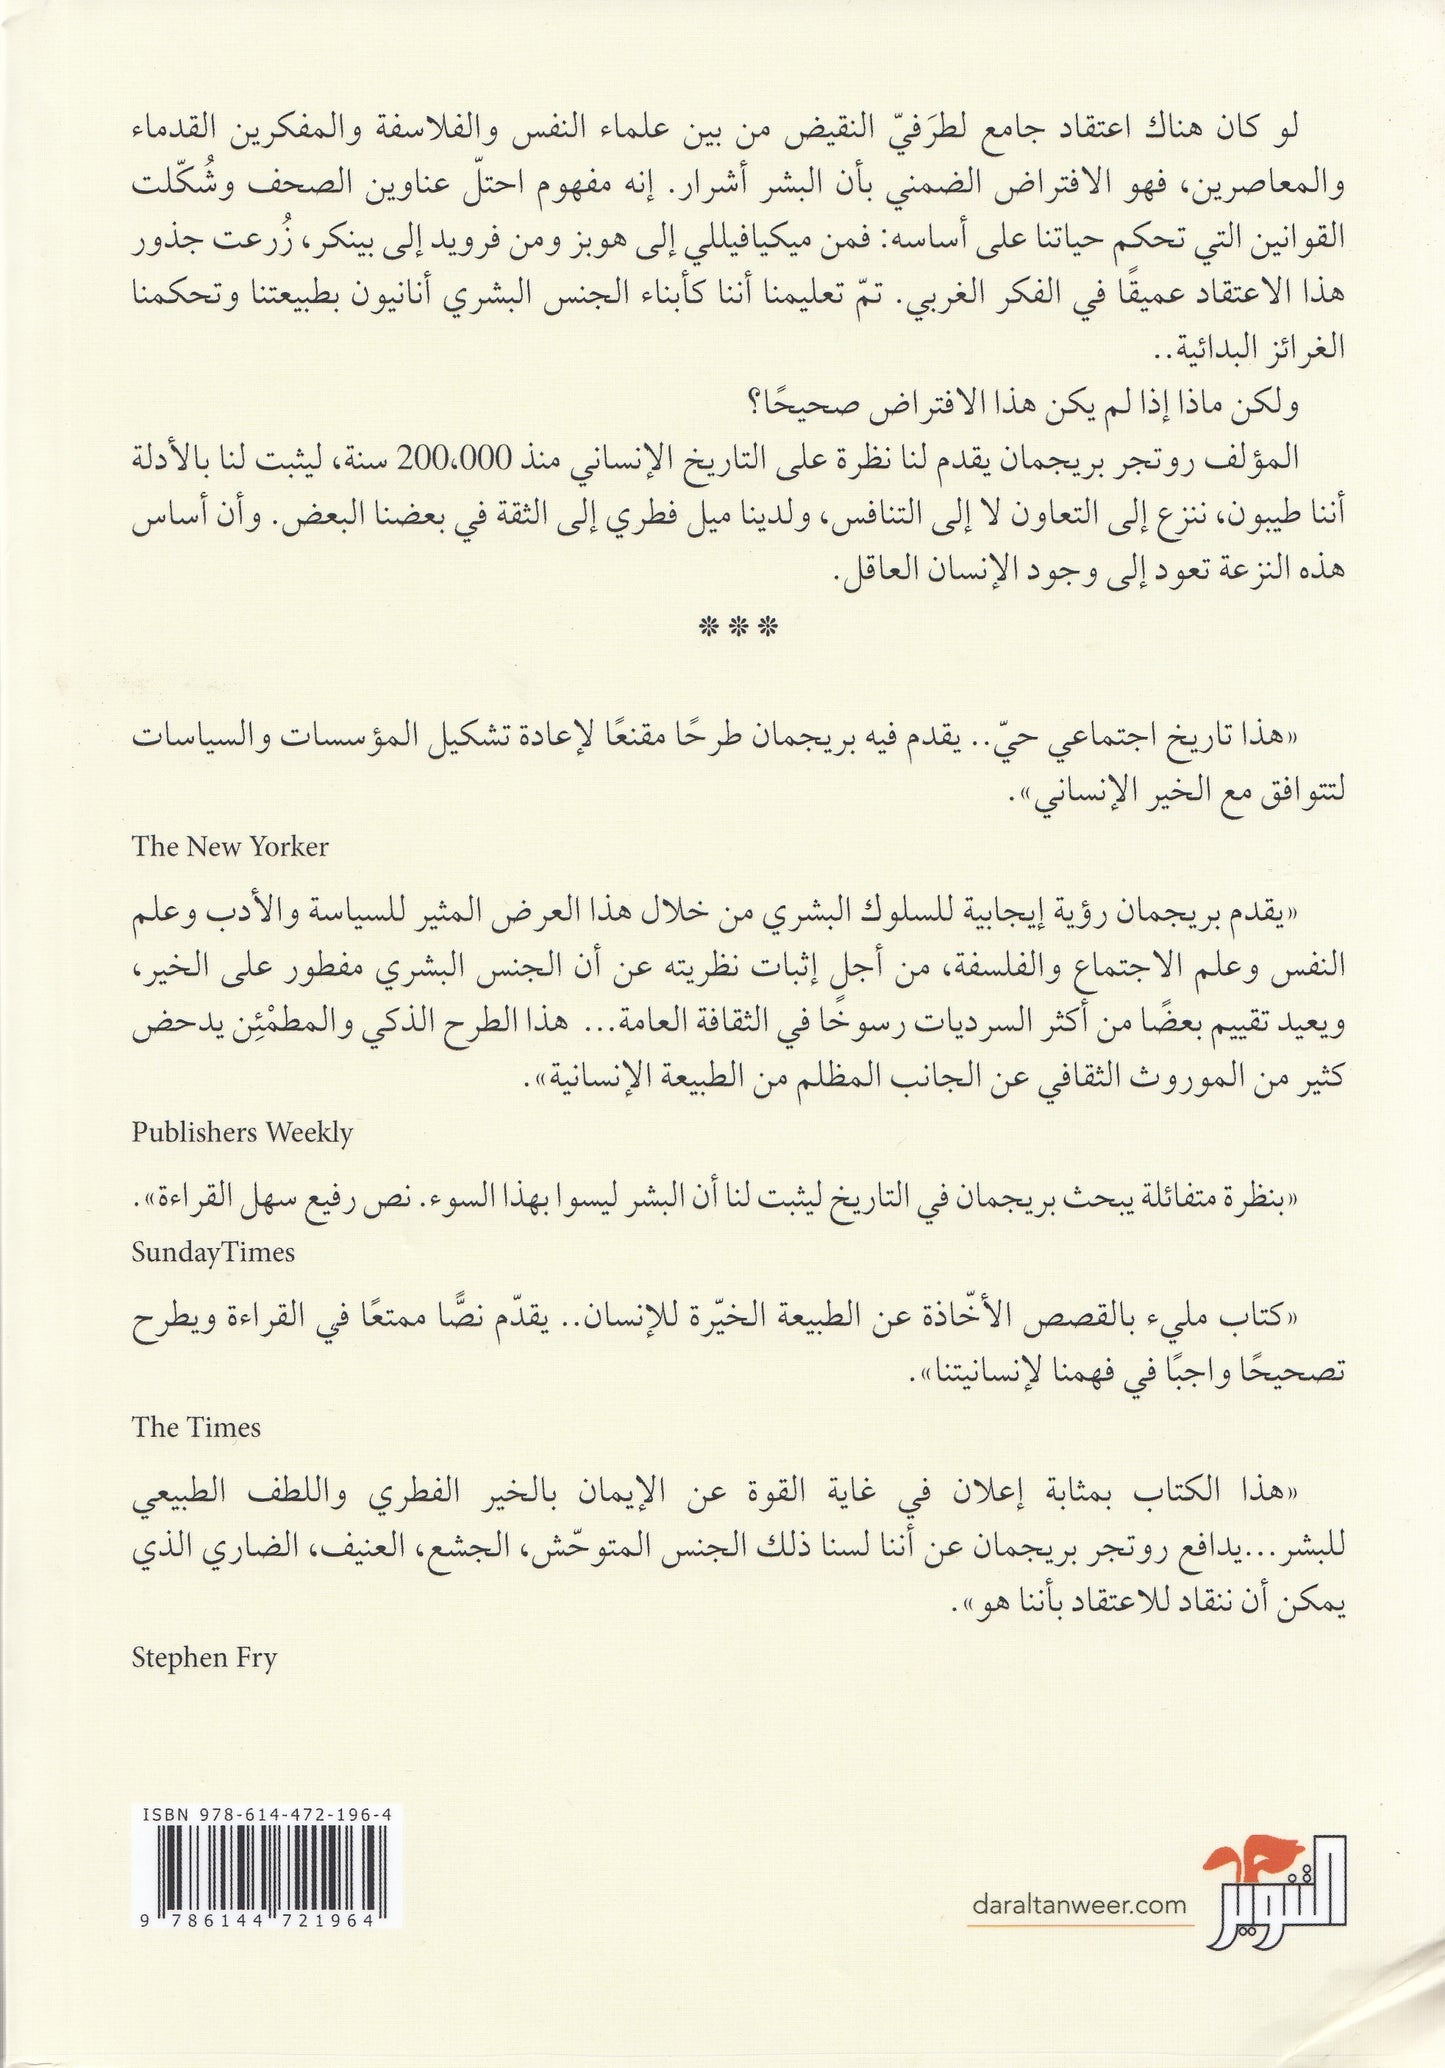 لو كان هناك اعتقاد جامع لطرَفيّ النقيض من بين علماء النفس والفلاسفة والمفكرين القدماء
والمعاصرين، فهو الافتراض الضمني بأن البشر أشرار. إنه مفهوم احتلّ عناوين الصحف وشُكّلت
القوانين التي تحكم حياتنا على أساسه: فمن ميكيافيللي إلى هوبز ومن فرويد إلى بينكر، زُرعت جذور
هذا الاعتقاد عميقًا في الفكر الغربي. تمّ تعليمنا أننا كأبناء الجنس البشري أنانيون بطبيعتنا وتحكمنا
الغرائز البدائية..
ولكن ماذا إذا لم يكن هذا الافتراض صحيحًا؟
المؤلف روتجر بريجمان يقدم لنا نظرة على التاريخ الإنساني منذ 200،000 سنة، ليثبت لنا بالأدلة
أننا طيبون، ننزع إلى التعاون لا إلى التنافس، ولدينا ميل فطري إلى الثقة في بعضنا البعض. وأن أساس
هذه النزعة تعود إلى وجود الإنسان العاقل.
***
«هذا تاريخ اجتماعي حيّ.. يقدم فيه بريجمان طرحًا مقنعًا لإعادة تشكيل المؤسسات والسياسات
لتتوافق مع الخير الإنساني».
The New Yorker
«يقدم بريجمان رؤية إيجابية للسلوك البشري من خلال هذا العرض المثير للسياسة والأدب وعلم
النفس وعلم الاجتماع والفلسفة، من أجل إثبات نظريته عن أن الجنس البشري مفطور على الخير،
ويعيد تقييم بعضًا من أكثر السرديات رسوخًا في الثقافة العامة... هذا الطرح الذكي والمطمْئِن يدحض
كثير من الموروث الثقافي عن الجانب المظلم من الطبيعة الإنسانية».
Publishers Weekly
«بنظرة متفائلة يبحث بريجمان في التاريخ ليثبت لنا أن البشر ليسوا بهذا السوء. نص رفيع سهل القراءة».
SundayTimes
«كتاب مليء بالقصص الأخّاذة عن الطبيعة الخيّرة للإنسان.. يقدّم نصًّا ممتعًا في القراءة ويطرح
تصحيحًا واجبًا في فهمنا لإنسانيتنا».
The Times
«هذا الكتاب بمثابة إعلان في غاية القوة عن الإيمان بالخير الفطري واللطف الطبيعي
للبشر...يدافع روتجر بريجمان عن أننا لسنا ذلك الجنس المتوحّش، الجشع، العنيف، الضاري الذي
يمكن أن ننقاد للاعتقاد بأننا هو».
Stephen Fry
ISBN 978-614-472-196-4
9 786144 721964
daraltanweer.com
التنوير